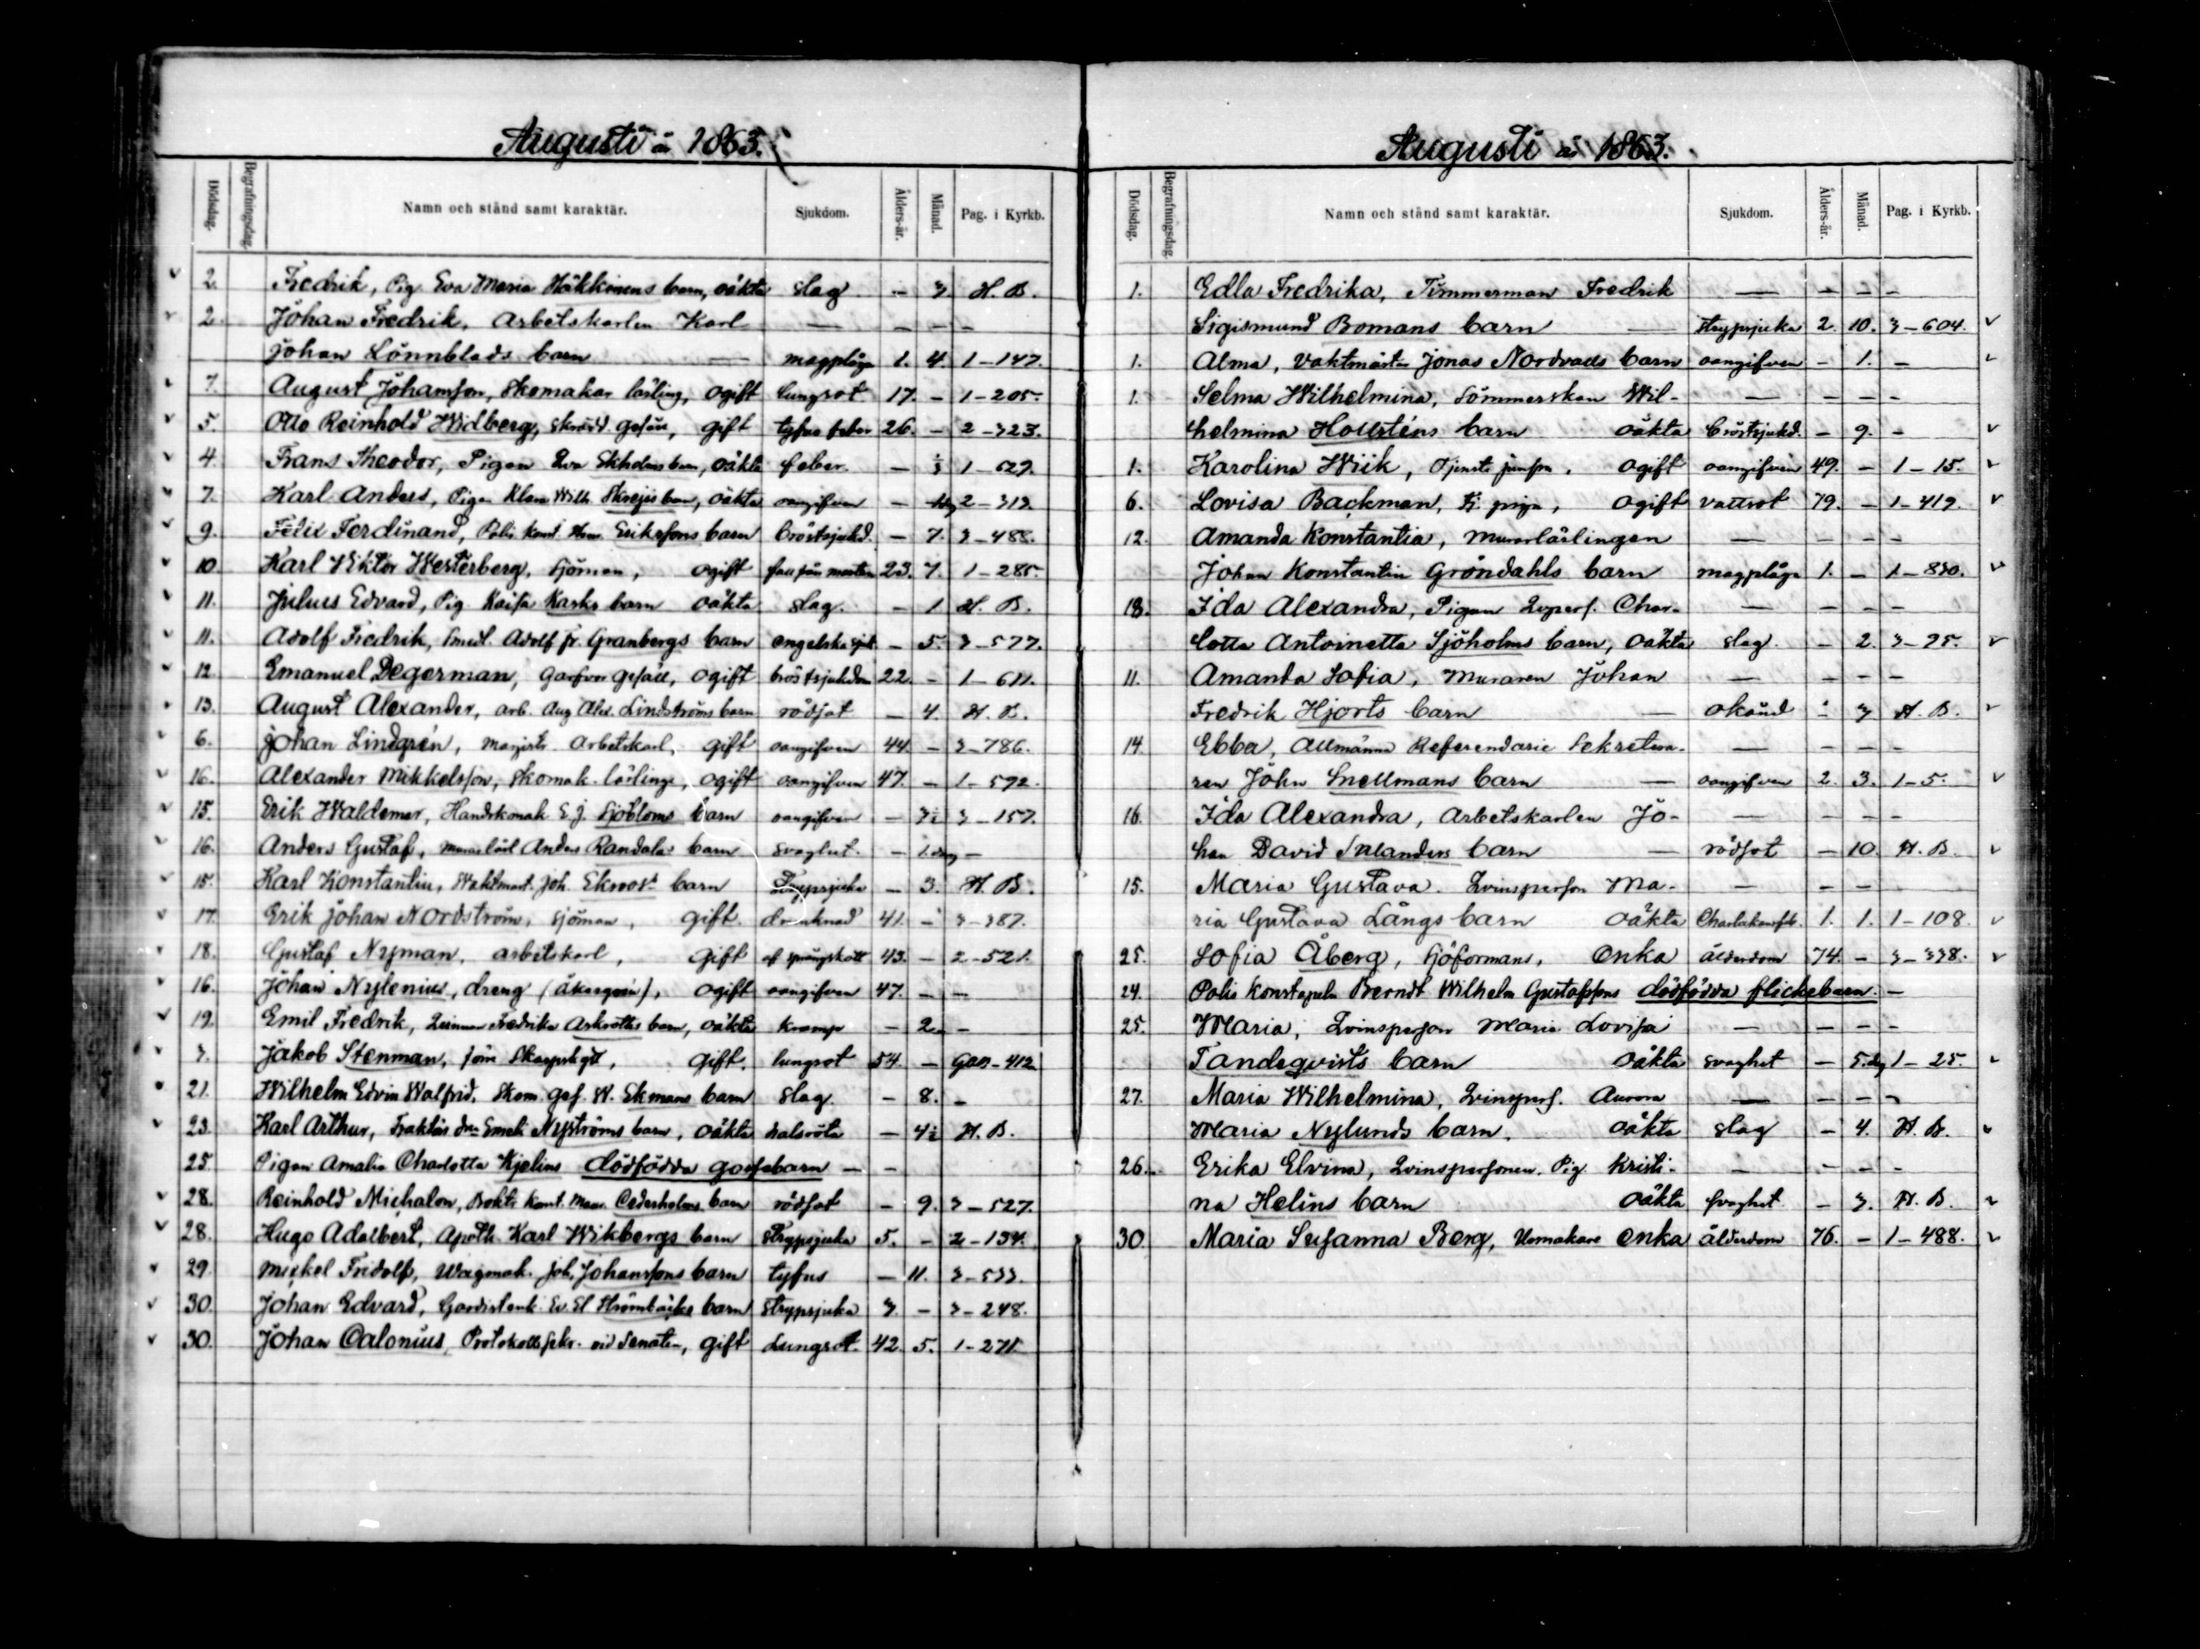 Augusti år 1863.
Dödsdag. Begrafningsdag. Namn och stånd samt karaktär. Sjukdom. Ålders-år. Månad. Pag. i Kyrkb.
2. Fredrik, Pig. Eva Maria Häkkinens barn, oäkta slag – 3. H. B.
2. Johan Fredrik, Arbetskarlen Karl — – – –
Johan Lönnblads barn — magplåga 1. 4. 1–147.
7. August Johansson, Skomakar lärling, ogift lungsot 17. – 1–205.
5. Otto Reinhold Widberg, skrädd. gesäll, gift tyfus feber 26. – 2–323.
4. Frans Theodor, Pigan Eva Ekholms barn, oäkta feber. – 1–629.
7. Karl Anders, Pigan Klara Wilh. barn, oäkta oangifven – 2–313.
9. Felix Ferdinand, Polis konst. Erikssons barn bröstsjukd. – 7. 3–488.
10. Karl Viktor Westerberg, Sjöman, ogift fall från masten 23. 7. 1–285.
11. Julius Edvard, Pig. Kaisa Karhs barn oäkta slag. – 1 H. B.
11. Adolf Fredrik, Smed. Adolf Fr. Granbergs barn engelska sjuk – 5. 3–577.
12. Emanuel Degerman, Garfvar gesäll, ogift bröstsjukdom 22. – 1–611.
13. August Alexander, arb. Aug. Alex. Lindströms barn rödsot – 4. H. B.
6. Johan Lindgrén, Magistr. Arbetskarl, gift oangifven 44. – 3–786.
16. Alexander Mikkelsson, Skomak. lärling, ogift oangifven 47. – 1–592.
15. Erik Waldemar, Handskmak. E. J. Sjöbloms barn oangifven – 3½ 3–157.
16. Anders Gustaf, Murarlärl Anders Randalas barn svaghet. – 1. dag –
15. Karl Konstantin, Waktmast. Joh. Ekroos' barn Strypsjuka – 3. H. B.
17. Erik Johan Nordström, sjöman, gift. drunknad 41. – 3–387.
18. Gustaf Nyman, arbetskarl, gift af sprängskott 43. – 2–521.
16. Johan Nylenius, dreng, ogift oangifven 47. – –
19. Emil Fredrik, Fredrika barn, oäkta kramp – 2. –
3. Jakob Stenman, gift, lungsot 54. – 412
21. Wilhelm Edvin Walfrid, Skom. ges. W. Ekmans barn slag. – 8. –
23. Karl Arthur, Emeli Nyströms barn, oäkta halsröta – 4½ H. B.
25. Pigan Amalia Charlotta Kjelins dödfödda gossebarn – –
28. Reinhold Michalon, Cederholms barn rödsot – 9. 3–527.
28. Hugo Adalbert, Apoth. Karl Wikbergs barn Strypsjuka 5. – 2–134.
29. Mickel Fridolf, Wagnmak. Joh. Johanssons barn tyfus – 11. 3–533.
30. Johan Edvard, Gardist barn Strypsjuka 3. – 3–248.
30. Johan Calonius, Protokollssekr. vid Senaten, gift Lungsot 42. 5. 1–271.
Augusti år 1863.
Dödsdag. Begrafningsdag. Namn och stånd samt karaktär. Sjukdom. Ålders-år. Månad. Pag. i Kyrkb.
1. Edla Fredrika, Timmerman Fredrik — – – –
Sigismund Bomans barn — strypsjuka 2. 10. 3–604.
1. Alma, Vaktmäst. Jonas Nordvalls barn oangifven – 1. –
1. Selma Wilhelmina, Sömmerskan Wil- — – – –
helmina Hollsténs barn oäkta bröstsjukd. – 9. –
1. Karolina Wiik, Tjenst. jungfru, ogift oangifven 49. – 1–15.
6. Lovisa Backman, K. piga, ogift vattsot 79. – 1–419.
12. Amanda Konstantia, Murarlärlingen — – – –
Johan Konstantin Gröndahls barn magplåga 1. – 1–830.
18. Ida Alexandra, Pigan Qvpers. Char- — – – –
lotta Antoinetta Sjöholms barn, oäkta slag. – 2. 3–95.
11. Amanda Sofia, Muraren Johan — – – –
Fredrik Hjorts barn — okänd – 3 H. B.
14. Ebba, Allmänna Referendarie Sekretera- — – – –
ren John Snellmans barn — oangifven 2. 3. 1–5.
16. Ida Alexandra, Arbetskarlen Jo- — – – –
han David Inlanders barn — rödsot – 10. H. B.
15. Maria Gustava. Qvinsperson Ma- — – –
ria Gustava Långs barn oäkta Charlakansfeb. 1. 1. 1–108.
25. Sofia Åberg, Sjöformans, Enka ålderdom 74. – 3–338.
24. Polis konstapeln Berndt Wilhelm Gustafssons dödfödda flickebarn. –
25. Maria, Qvinsperson Maria Lovisa — – – –
Tandeqvists barn oäkta svaghet – 5. dg 1–25.
27. Maria Wilhelmina, Qvinspers. Aurora — – – –
Maria Nylunds barn, oäkta slag – 4. H. B.
26. Erika Elvina, Qvinspersonen. Pig. Kristi- – – – –
na Helins barn oäkta svaghet – 3. H. B.
30. Maria Susanna Berg, Urmakare Enka ålderdom 76. – 1–488.